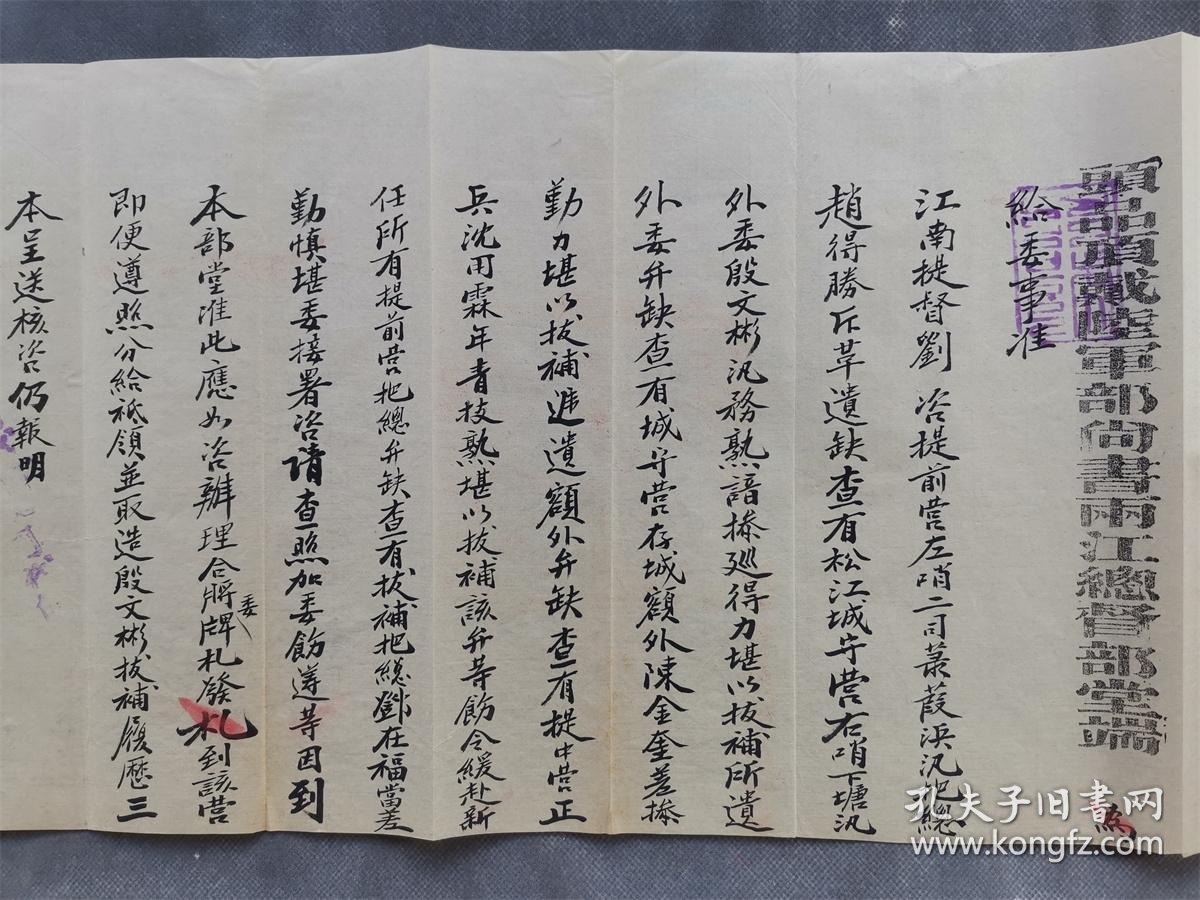 頭品頂戴陸軍部尚書兩江總督部堂端 為
給委事准
江南提督劉 咨提前營左哨二司蒹葭浜汛把總
趙得勝斥革遺缺查有松江城守營右哨下塘汛
外委殷文彬汛務熟諳捧廵得力堪以拔補所遺
外委弁缺查有城守營存城額外陳金奎差捧
勤力堪以拔補遞遺額外弁缺查有提中營正
兵沈用霖年青技熟堪以拔補該弁等飭令緩赴新
任所有提前營把總弁缺查有拔補把總鄧在福當差
勤慎堪委接署咨請查照加委飭遵等因到
本部堂准此應如咨辦理合將委牌札發札到該營
即便遵照分給祗領並取造殷文彬拔補履歷三
本呈送核咨仍報明
孔夫子旧書网
www.kongfz.com